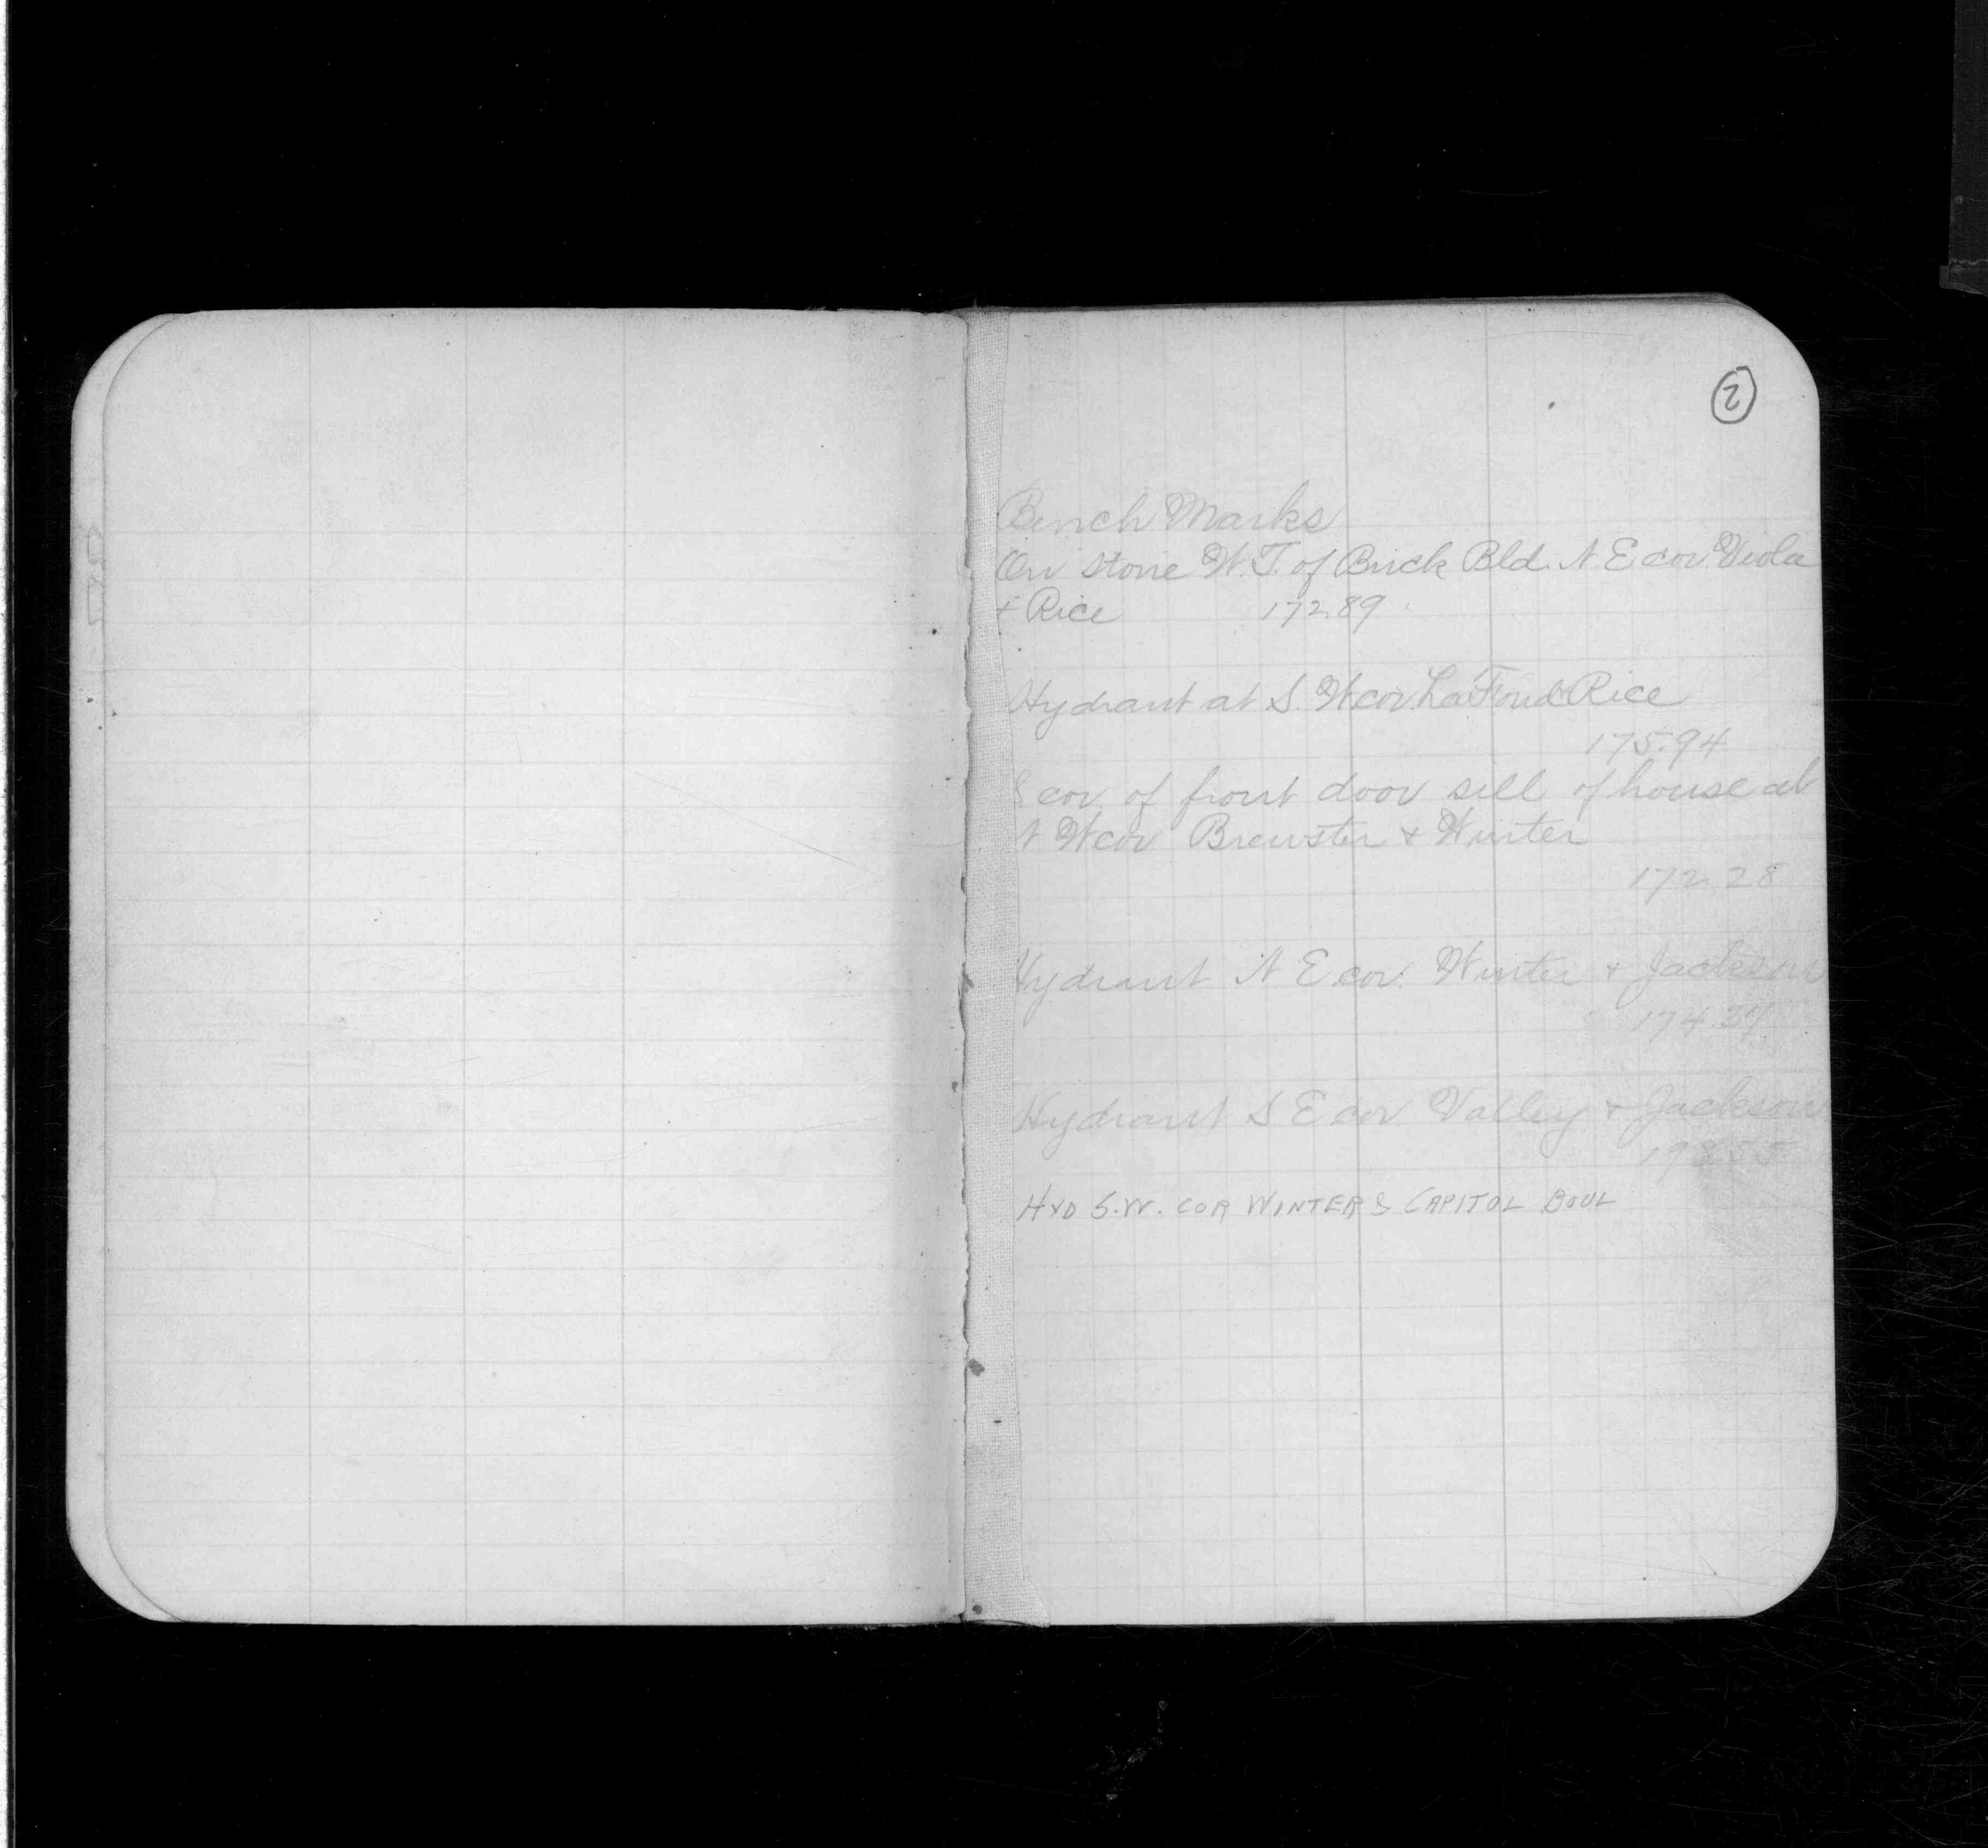 2
Bench Marks
On stone W.T. of Brick Bld. N E cor. Viola
+ Rice 172.89
Hydrant at S. W cor La Fond & Rice
175.94
S cor. of front door sill of house at
N W cor Brewster + Winter
172.28
Hydrant N. E cor. Winter + Jackson
174.37
Hydrant S E cor. Valley + Jackson
198.55
HYD S.W. COR WINTER & CAPITOL BOUL